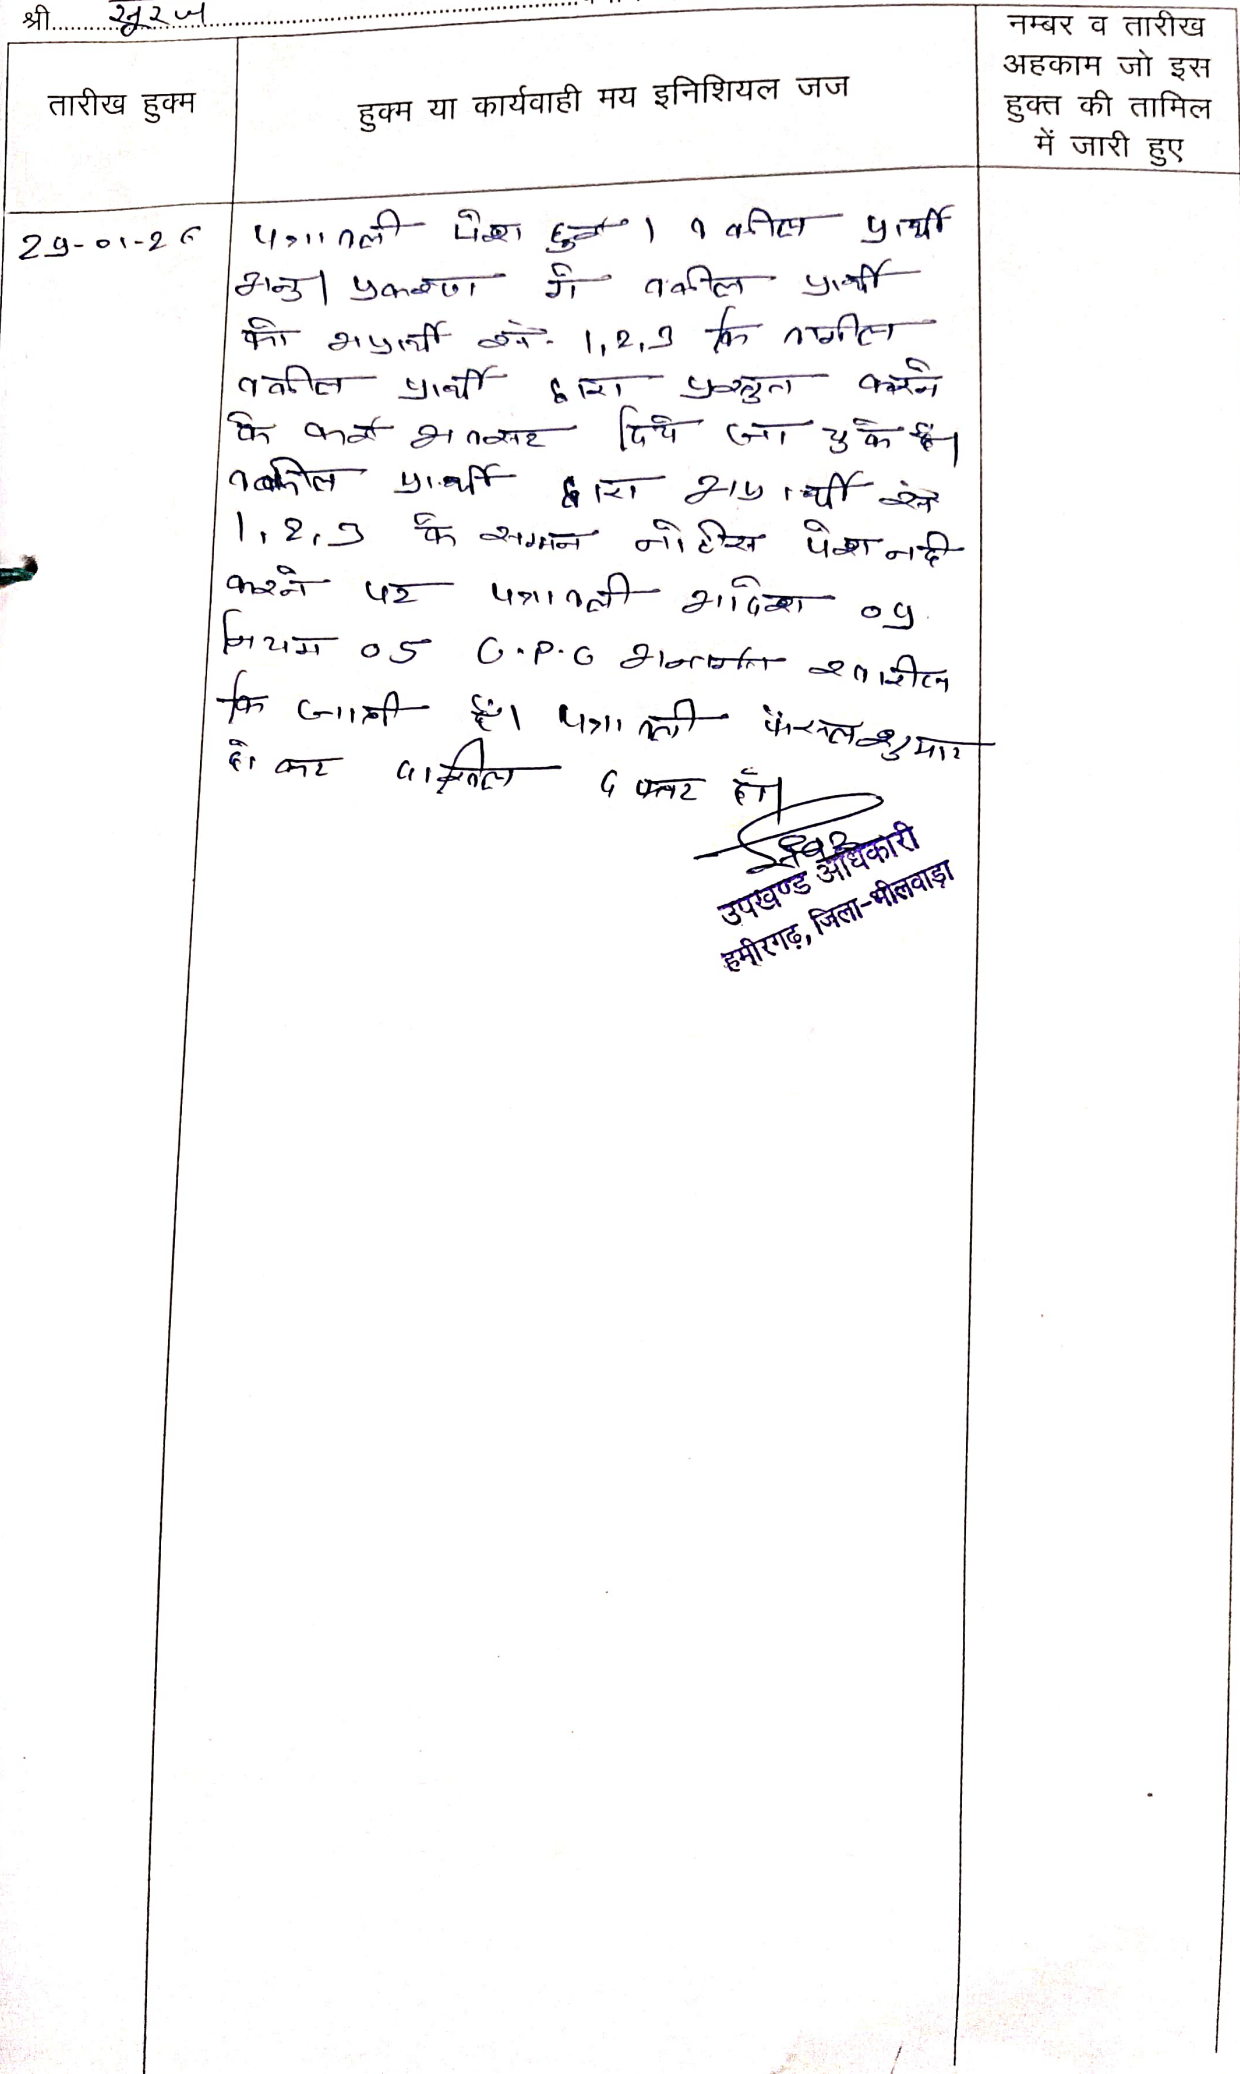 श्री सूरज
तारीख हुक्म
हुक्म या कार्यवाही मय इनिशियल जज
नम्बर व तारीख
अहकाम जो इस
हुक्त की तामिल
में जारी हुए
29-01-26
पत्रावली पेश हुई। वकील प्रार्थी
अनु। प्रकरण में वकील प्रार्थी
को अप्रार्थी सं. 1,2,3 कि तामील
वकील प्रार्थी द्वारा प्रस्तुत करने
के कई अवसर दिये जा चुके हैं।
वकील प्रार्थी द्वारा अप्रार्थी सं
1,2,3 के सम्मन नोटिस पेश नही
करने पर पत्रावली आदेश 09
नियम 05 C.P.C अन्तर्गत खारीज
कि जाती हैं। पत्रावली फैसल शुमार
हो कर दाखिल दफ्तर हो।
उपखण्ड अधिकारी
हमीरगढ़, जिला-भीलवाड़ा